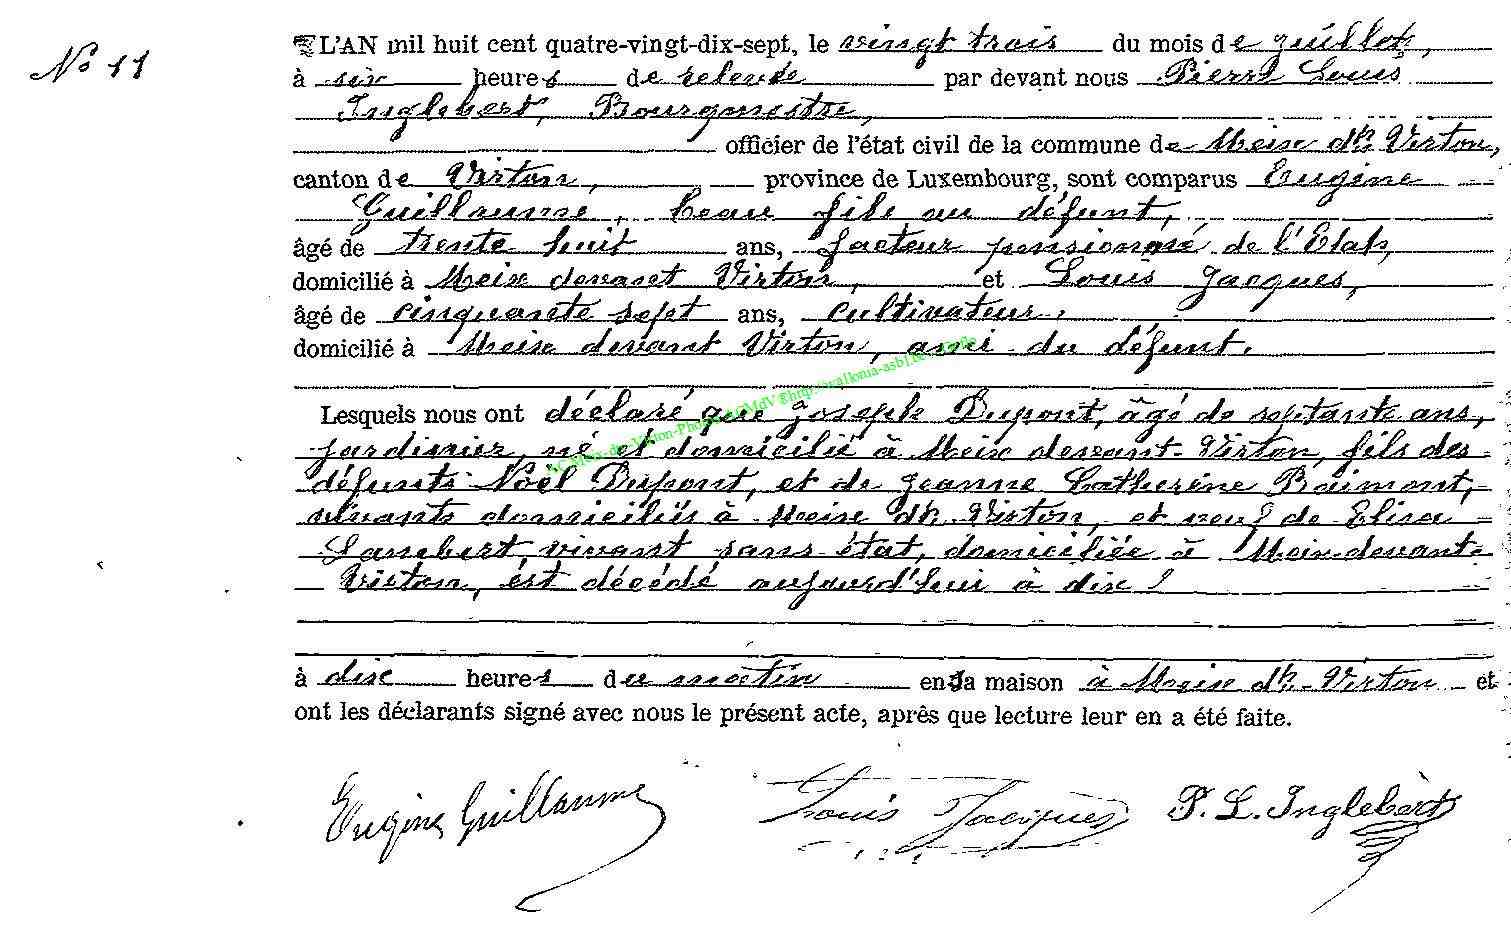 N° 11
L'AN mil huit cent quatre-vingt-dix-sept, le vingt trois du mois de juillet,
à six heures de relevée par devant nous Pierre Louis
Inglebert, Bourgmestre,
officier de l'état civil de la commune de Meix dt Virton,
canton de Virton, province de Luxembourg, sont comparus Eugène
Guillaume, beau fils au défunt,
âgé de trente huit ans, facteur pensionné de l'Etat,
domicilié à Meix devant Virton, et Louis Jacques,
âgé de cinquante sept ans, cultivateur,
domicilié à Meix devant Virton, ami du défunt.
Lesquels nous ont déclaré que Joseph Dupont, âgé de septante ans,
jardinier, né et domicilié à Meix devant-Virton, fils des
défunts Noël Dupont, et de Jeanne Catherine Baimont,
vivants domiciliés à Meix dt Virton, et veuf de Elisa
Lambert, vivant sans état, domiciliée à Meix-devant-
Virton, est décédé aujourd'hui à dix
à dix heures du matin en sa maison à Meix dt-Virton et
ont les déclarants signé avec nous le présent acte, après que lecture leur en a été faite.
Eugène Guillaume Louis Jacques P. L. Inglebert